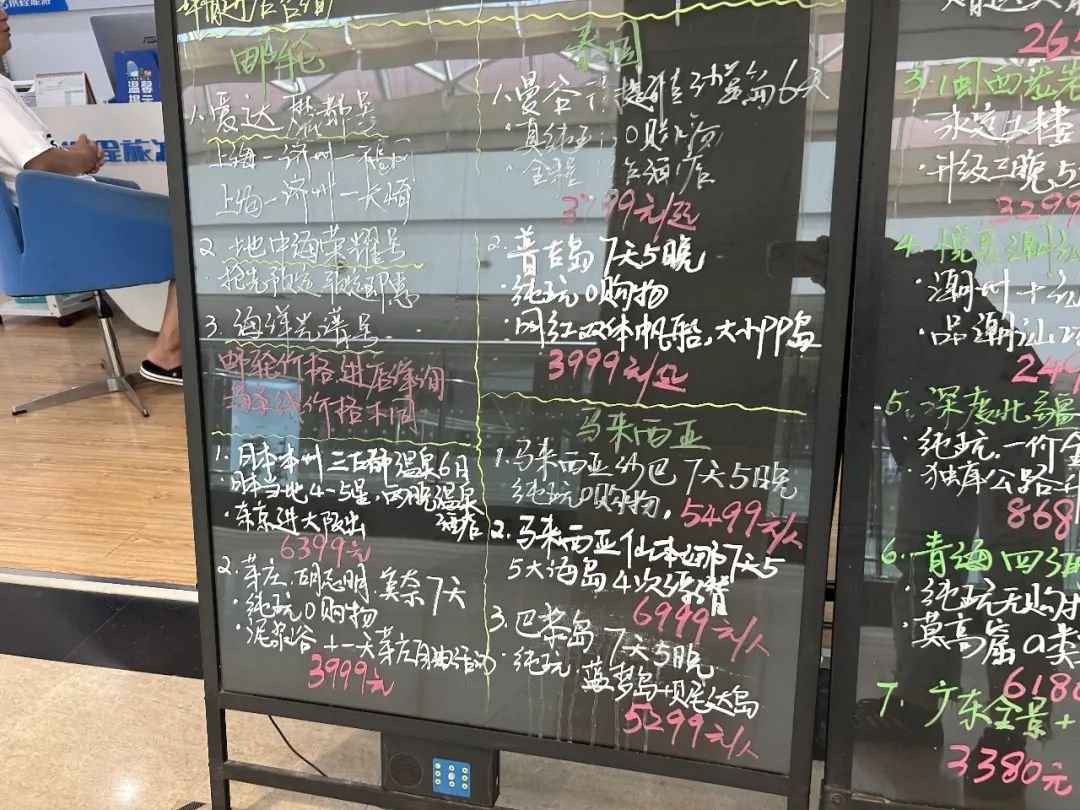 邮轮
1. 爱达·魔都号
上海-济州-福冈
上海-济州-长崎
2. 地中海荣耀号
抢先预定
3. 海洋光谱号
邮轮价格进店咨询
每条线价格不同
1. 日本本州三古都温泉6日
·日本当地4-5星,两晚温泉
酒店
·东京进大阪出
6399元
2. 芽庄.胡志明.美奈7天
·纯玩0购物
·一天芽庄自由活动
3999元
泰国
1.曼谷 6天
·真纯玩 0购物
酒店
99元/
2. 普吉岛7天5晚
·纯玩0购物
·网红双体帆船,大小PP岛
3999元/
马来西亚
1. 马来西亚沙巴7天5晚
纯玩0购物,
5499元/人
2. 马来西亚仙本那7天5
5大海岛4次浮潜
6999元/人
3. 巴厘岛7天5晚
·纯玩 蓝梦岛+贝尼达岛
5299元/人
265
3. 闽西
永定土楼
·升级三晚5
3299
4. 悦享潮汕
·潮州+汕
·品潮汕
249
5. 深度北疆
·纯玩.一价全
·独库公路
868
6. 青海
·纯玩无购物
·莫高窟a类
618
7. 广东全景+
3380元
温馨